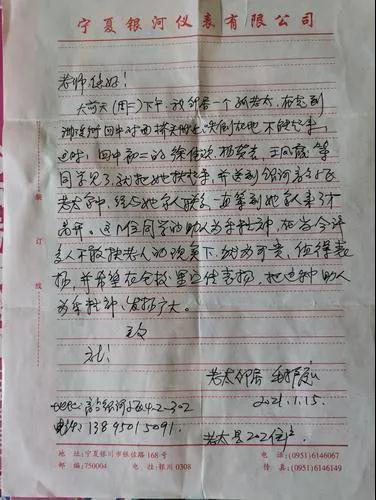 宁夏银河仪表有限公司
老师们好!
大前天(周二)下午,我邻居一个孤老太,在走到
回中对面摔倒在地不能起来,
这时,回中初二的徐佳欢、杨赞、王凤霞等
同学见了,就把她扶起来,并送到银河高台小区
老太家中,给与她家人联系,一直等到她家人来了才
离开。这几位同学的助人为乐精神,在当今许
多人不敢扶老人的现象下,尤为可贵,值得表
扬,并希望在全校里宣传表扬,把这种助人
为乐精神,发扬广大。
致
礼!
老太邻居
2021.1.15.
地址:高台银河小区4-2-302
电话:13895015091.
老太是202住户
装
订
线
地址:宁夏银川市银佐路168号
电话:(0951)6146067
邮编:750004
电挂:银川0308
传真:(0951)6146149